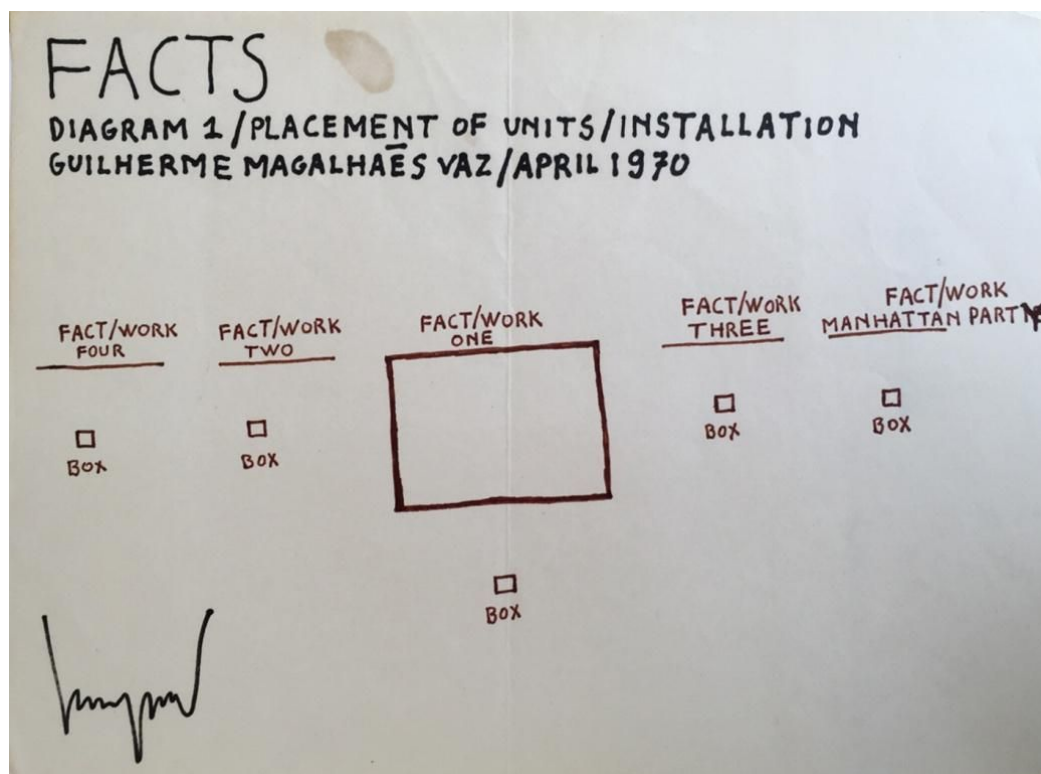 FACTS
DIAGRAM 1/PLACEMENT OF UNITS/INSTALLATION
GUILHERME MAGALHAĒS VAZ/APRIL 1970
FACT/WORK
FOUR
BOX
FACT/WORK
TWO
BOX
FACT/WORK
ONE
BOX
FACT/WORK
THREE
BOX
FACT/WORK
MANHATTAN PART
BOX